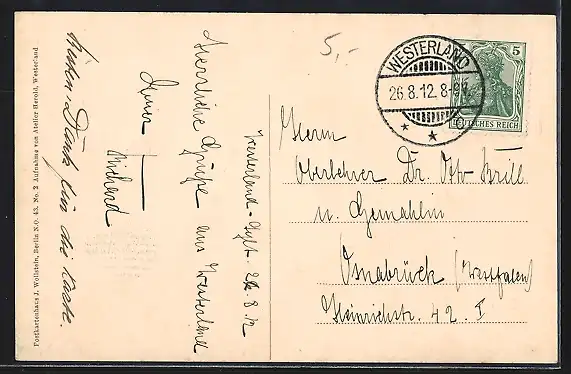 Postkartenhaus J. Wollstein, Berlin N.O. 43. No. 2 Aufnahme von Atelier Herold, Westerland
Vielen Dank für die Karte.
Westerland-Sylt 26.8.12
Herzliche Grüße aus Westerland
Richard
5,-
WESTERLAND
26.8.12.8-9V.
5
DEUTSCHES REICH
Herrn
Oberlehrer Dr. Otto Brill
u. Gemahlin
Osnabrück (Westfalen)
Heinrichstr. 42. I